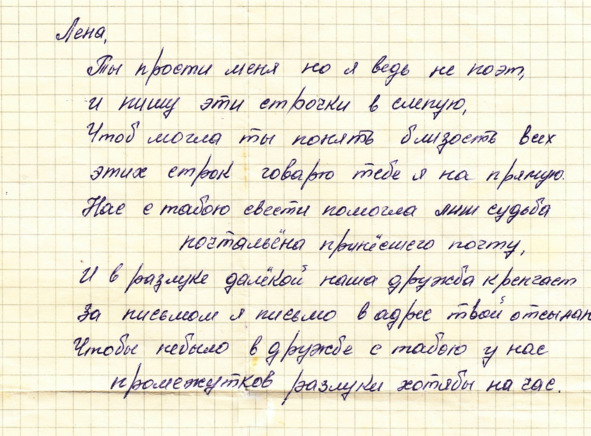 Лена,
Ты прости меня но я ведь не поэт,
и пишу эти строчки в слепую,
Чтоб могла ты понять близость всех
этих строк говарю тебе я на прямую.
Нас с табою свести помогла лиш судьба
почтальёна принёсшего почту,
И в разлуке далёкой наша дружба крепчает
За письмом я письмо в адрес твой отсылаю
Чтобы небыло в дружбе с табою у нас
промежутков разлуки хотябы на час.